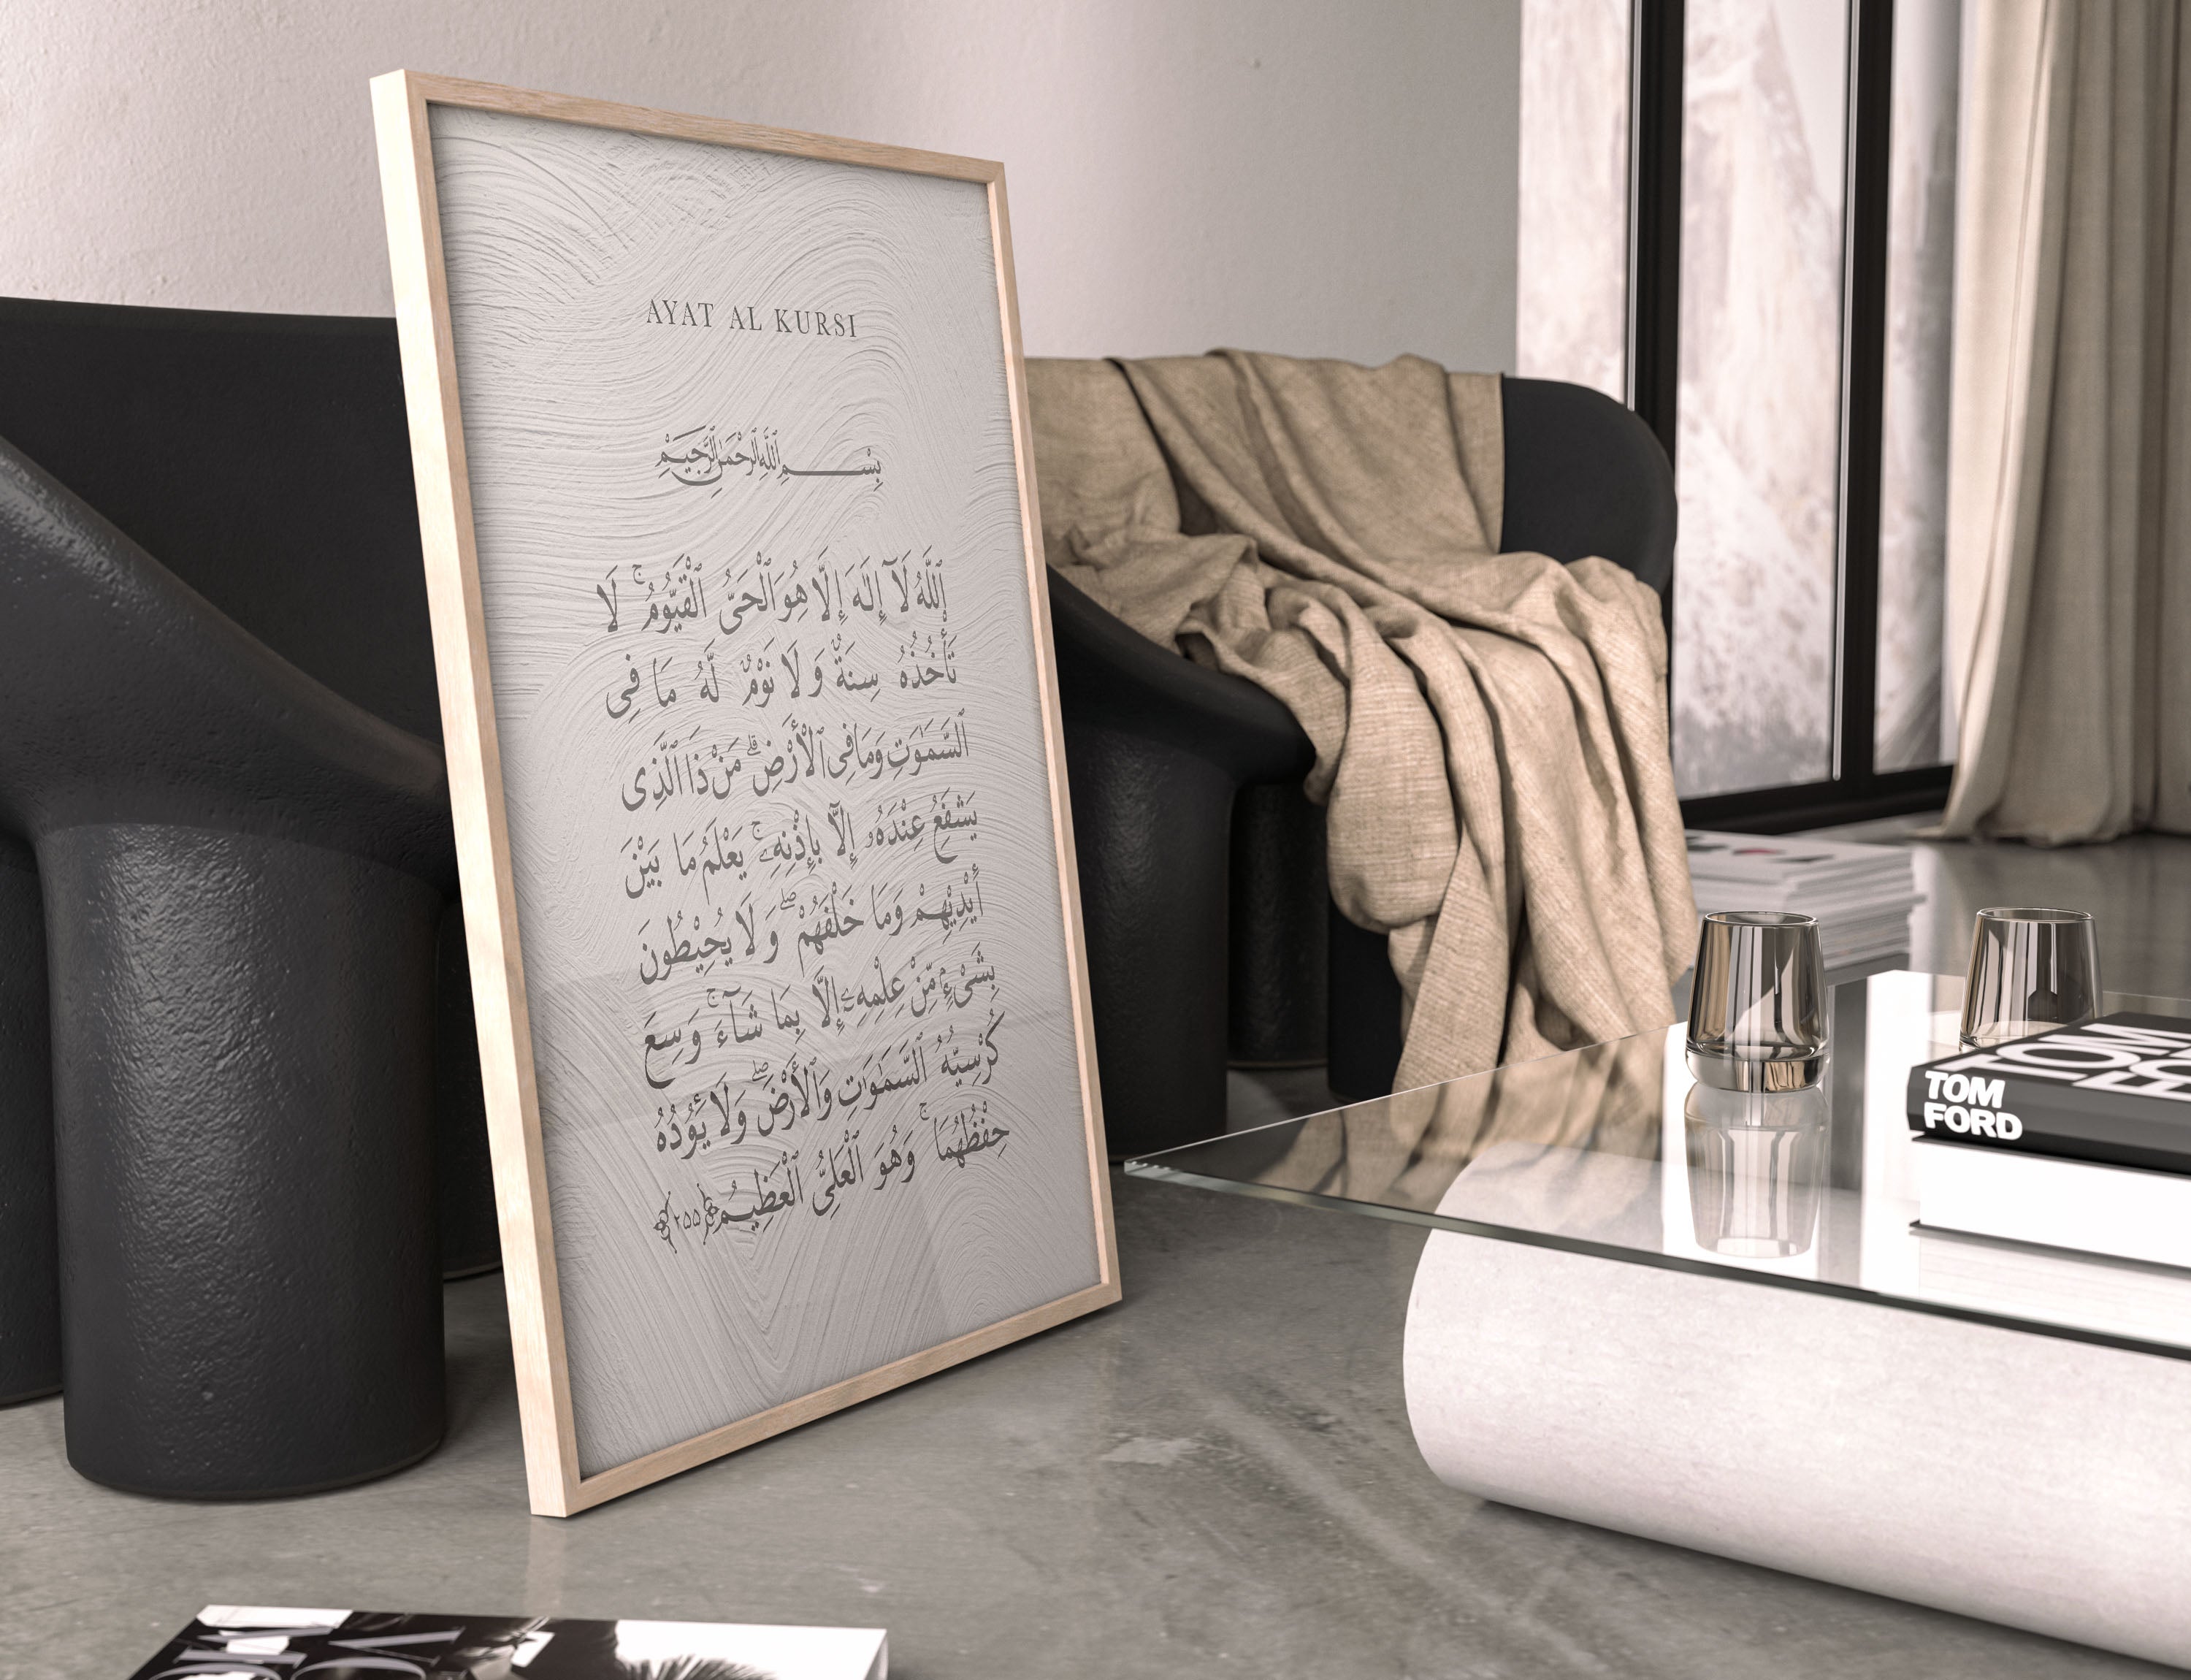 AYAT AL KURSI
بِسْمِ ٱللَّهِ ٱلرَّحْمَٰنِ ٱلرَّحِيمِ
ٱللَّهُ لَآ إِلَٰهَ إِلَّا هُوَ ٱلْحَىُّ ٱلْقَيُّومُ ۚ لَا
تَأْخُذُهُ سِنَةٌ وَ لَا نَوْمٌ لَّهُ مَا فِى
ٱلسَّمَٰوَٰتِ وَمَا فِى ٱلْأَرْضِ ۗ مَنْ ذَا ٱلَّذِى
يَشْفَعُ عِنْدَهُۥ إِلَّا بِإِذْنِهِۦ ۚ يَعْلَمُ مَا بَيْنَ
أَيْدِيْهِمْ وَمَا خَلْفَهُمْ ۖ وَ لَا يُحِيْطُونَ
بِشَىْءٍ مِّنْ عِلْمِهِۦٓ إِلَّا بِمَا شَآءَ ۚ وَسِعَ
كُرْسِيُّهُ ٱلسَّمَٰوَٰتِ وَٱلْأَرْضَ ۖ وَلَا يَـُٔودُهُ
حِفْظُهُمَا ۚ وَهُوَ ٱلْعَلِىُّ ٱلْعَظِيمُ ﴿٢٥٥﴾
TOM
FORD